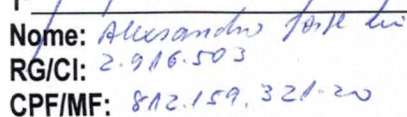 Nome: Alexsandro José
RG/CI: 2.916.503
CPF/MF: 812.159.321-20